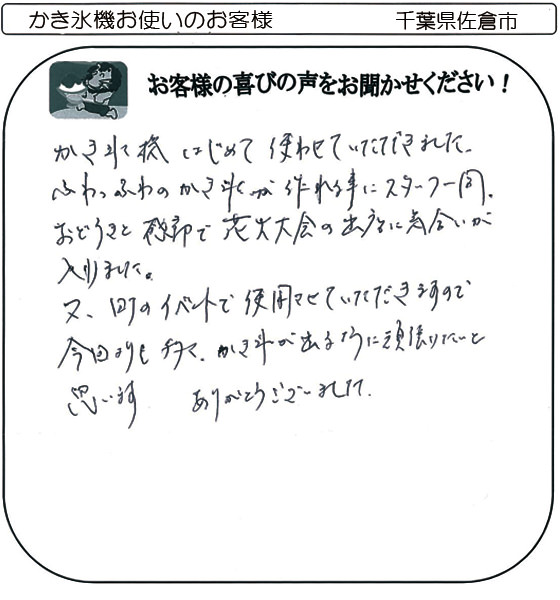 かき氷機お使いのお客様
千葉県佐倉市
お客様の喜びの声をお聞かせください！
かき氷機 はじめて 使わせていただきました。
ふわっふわのかき氷が 作れる事に スタッフ一同、
おどろきと 感動で 花火大会の出店に気合いが
入りました。
又、町のイベントで 使用させていただきますので
今回よりも 多く、かき氷が出るように頑張りたいと
思います ありがとうございました。